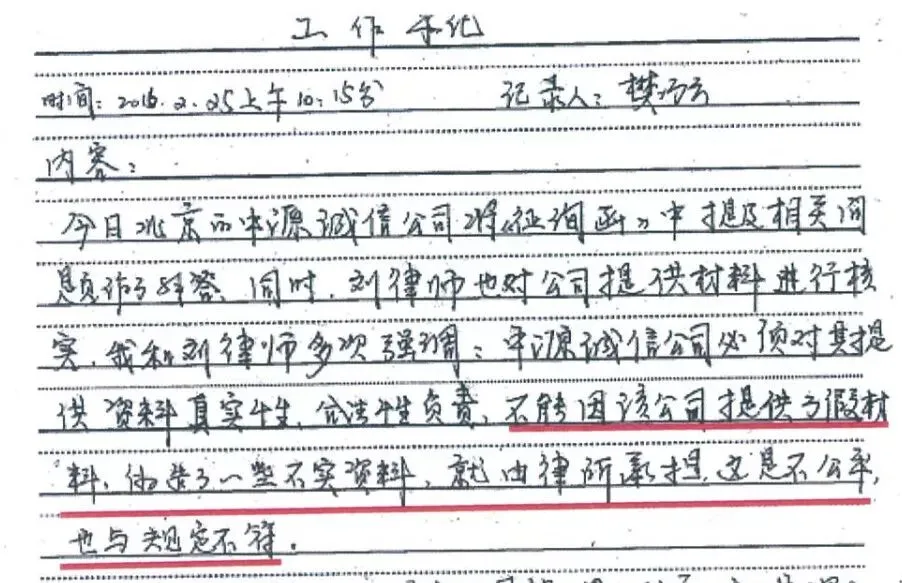 工作手记
时间：2016.2.25上午10:15分 记录人：樊
内容：
今日北京的中源诚信公司将《征询函》中提及相关问
题作了解答、同时，刘律师也对公司提供材料进行核
实，我和刘律师多次强调：中源诚信公司必须对其提
供资料真实性、合法性负责，不能因该公司提供了假材
料、伪造了一些不实资料，就由律所承担，这是不公平，
也与规定不符．